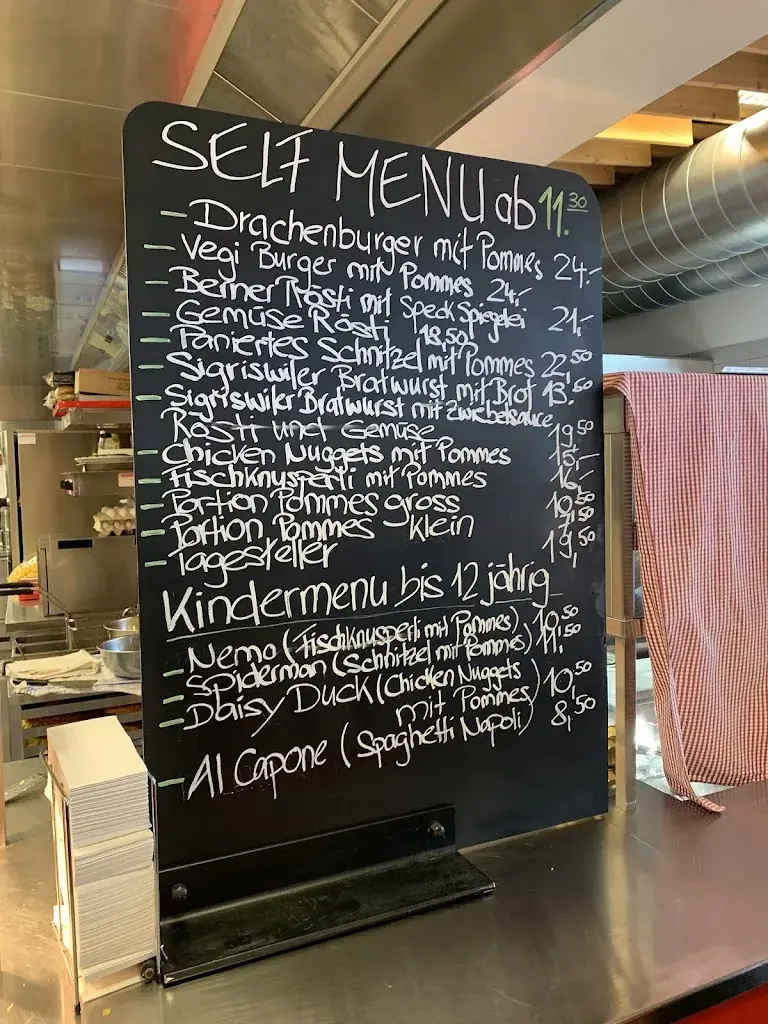 SELF MENU ab 11.30
- Drachenburger mit Pommes 24.-
- Vegi Burger mit Pommes 24,-
- Berner Rösti mit Speck Spiegelei 21,-
- Gemüse Rösti 18,50
- Paniertes Schnitzel mit Pommes 22,50
- Sigriswiler Bratwurst mit Brot 13.50
- Sigriswiler Bratwurst mit Zwiebelsauce
Rösti und Gemüse 19,50
- Chicken Nuggets mit Pommes 15,-
- Fischknusperli mit Pommes 16,-
- Portion Pommes gross 10,50
- Portion Pommes klein 7,50
- Tagesteller 19,50
Kindermenu bis 12 jährig
- Nemo (Fischknusperli mit Pommes) 10.50
- Spiderman (Schnitzel mit Pommes) 11.50
- Daisy Duck (Chicken Nuggets
mit Pommes) 10,50
- Al Capone (Spaghetti Napoli) 8,50